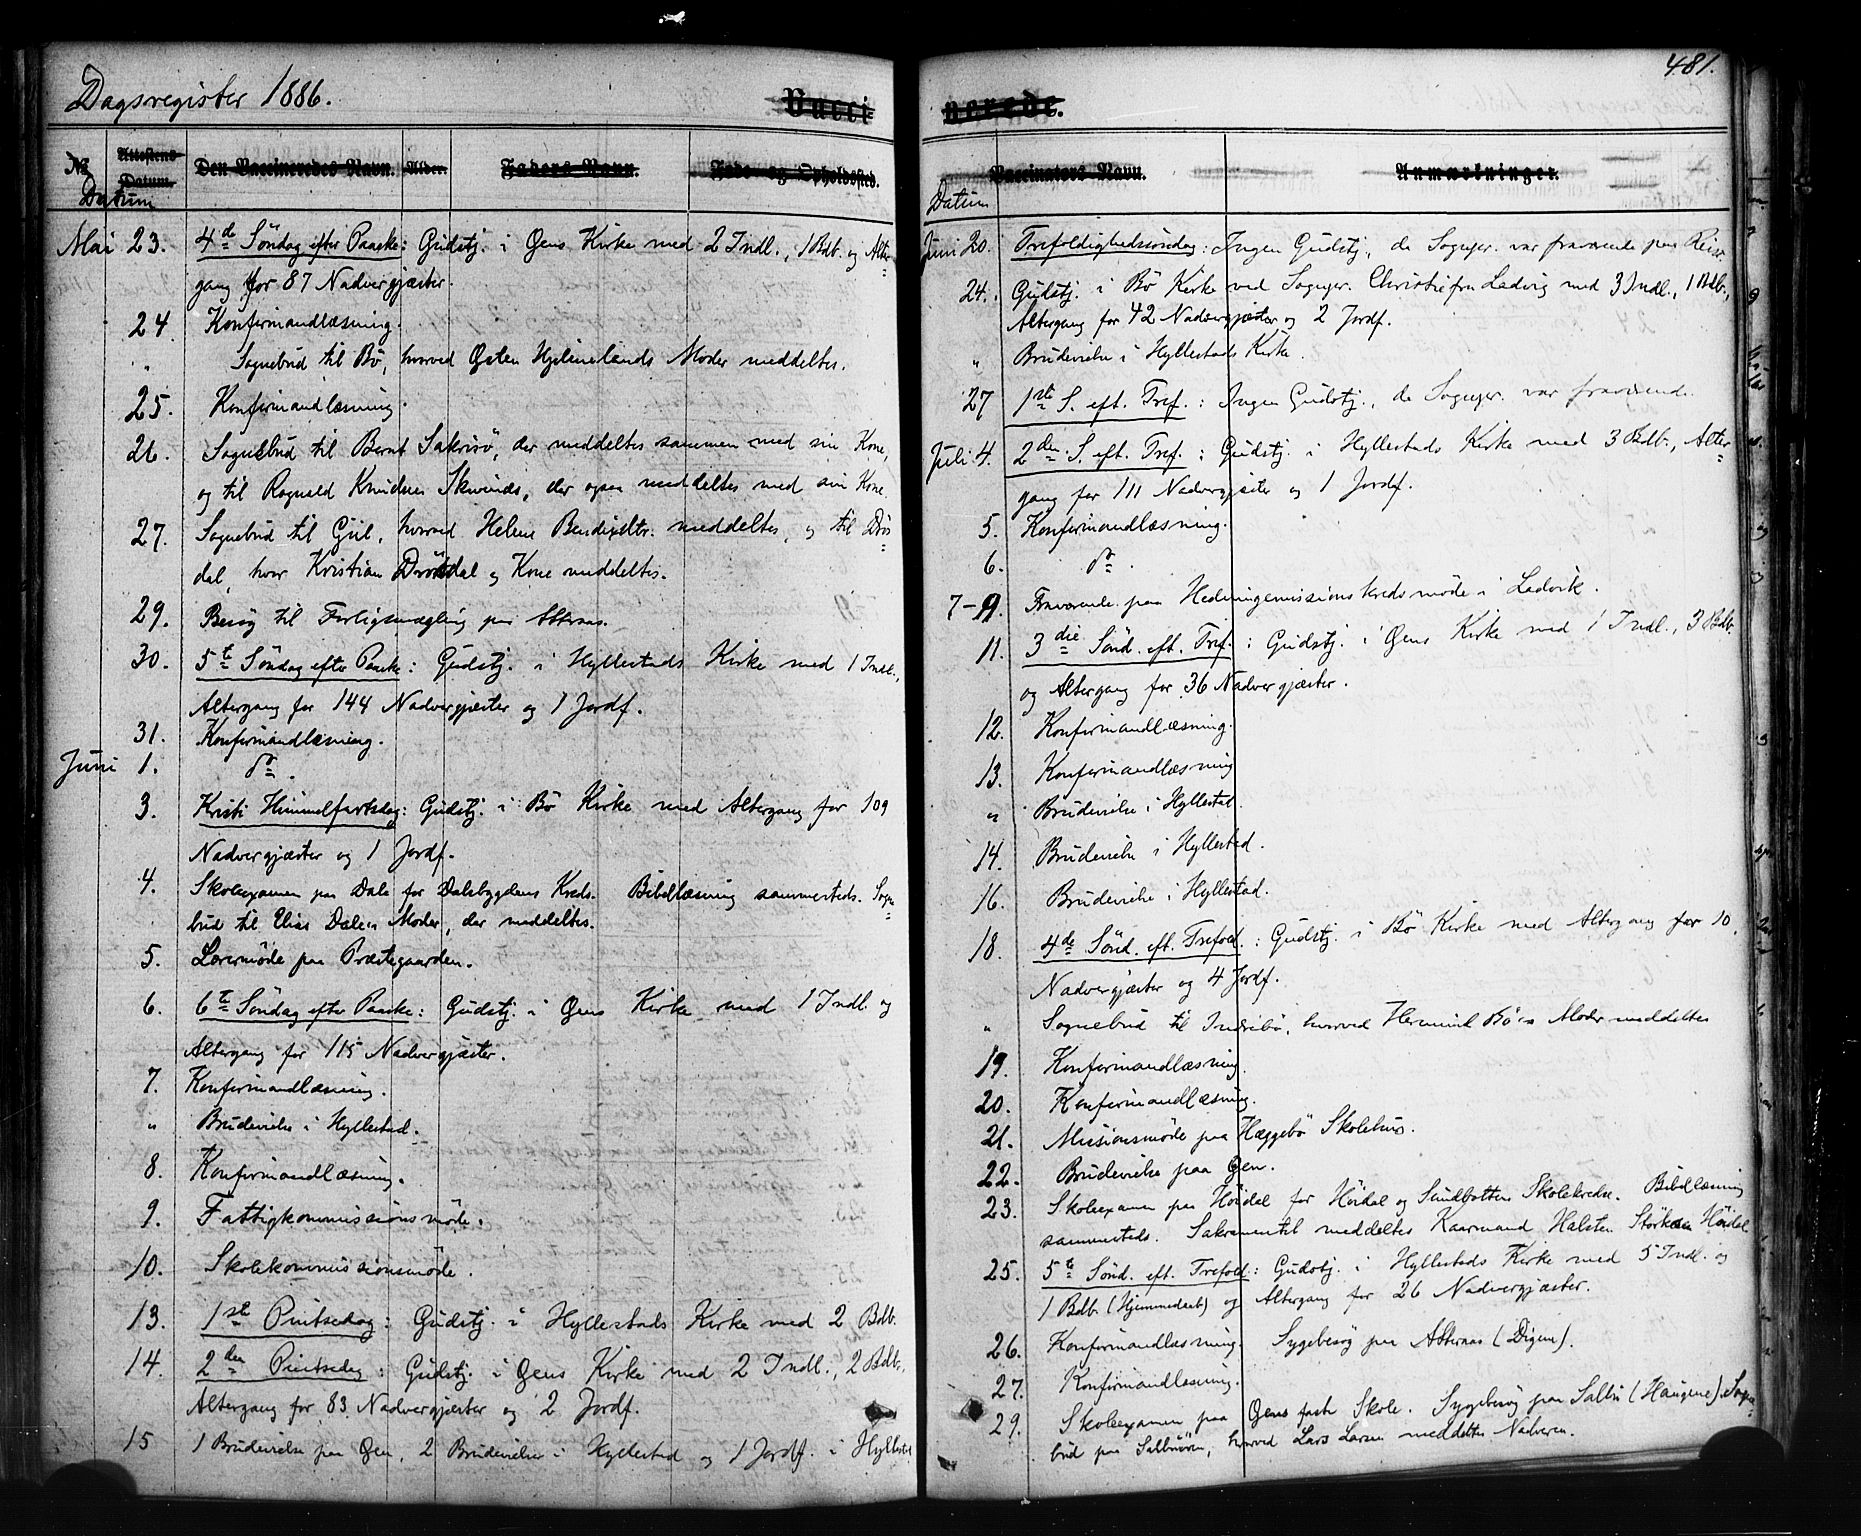 Dagsregister 1886.
Vacci
No.
Attestens Datum.
Den Vaccineredes Navn.
Alder.
Faders Navn.
Føde- og Opholdssted.
Datum
Mai 23. 4de Søndag efter Paaske: Gudstj. i Øens Kirke med 2 Indl., 1 Bdb. og Alter=
gang for 87 Nadvergjæster.
24. Konfirmandlæsning.
" Sognebud til Bø, hvorved Østen Hjelmelands Moder meddeltes.
25. Konfirmandlæsning.
26. Sognebud til Bernt Sakrisø, der meddeltes sammen med sin Kone,
og til Rognald Knudsen, der ogsaa meddeltes med sin Kone.
27. Sognebud til Giil, hvorved Helene Bendixdtr. meddeltes, og til Drös=
dal, hvor Kristian Drösdal og Kone meddeltes.
29. Besøg til Forligsmægling paa Atternas.
30. 5te Søndag efter Paaske: Gudstj. i Hyllestads Kirke med 1 Indl.,
Altergang for 144 Nadvergjæster og 1 Jordf.
31. Konfirmandlæsning.
Juni 1. do.
3. Kristi Himmelfartsdag: Gudstj. i Bø Kirke med Altergang for 109
Nadvergjæster og 1 Jordf.
4. Skoleexamen paa Dale for Dalsbygdens Kreds. Bibellæsning sammesteds. Sogne=
bud til Elias Dale's Moder, der meddeltes.
5. Lærermøde paa Præstegaarden.
6. 6te Søndag efter Paaske: Gudstj. i Øens Kirke med 1 Indl. og
Altergang for 115 Nadvergjæster.
7. Konfirmandlæsning.
" Brudevielse i Hyllestad.
8. Konfirmandlæsning.
9. Fattigkommissionsmøde.
10. Skolekommissionsmøde.
13. 1ste Pintsedag: Gudstj. i Hyllestads Kirke med 2 Bdb.
14. 2den Pintsedag: Gudstj. i Øens Kirke med 2 Indl., 2 Bdb.
Altergang for 83 Nadvergjæster og 2 Jordf.
15 1 Brudevielse paa Øen, 2 Brudevielser i Hyllestad og 1 Jordf. i Hyllestad
481.
nerede.
Vaccinators Navn.
Anmærkninger.
Datum
Juni 20. Trefoldighedssøndag: Ingen Gudstj., da Sogupr. var fraværende paa Reise.
24. Gudstj. i Bø Kirke ved Sognepr. Christie fra Ladvig med 3 Indl., 1 Bdb.,
Altergang for 42 Nadvergjæster og 2 Jordf.
" Brudevielse i Hyllestads Kirke.
27 1ste S. eft. Tref.: Ingen Gudstj., da Sognepr. var fraværende.
Juli 4. 2den S. eft. Tref.: Gudstj. i Hyllestads Kirke med 3 Bdb., Alter=
gang for 111 Nadvergjæster og 1 Jordf.
5. Konfirmandlæsning.
6. do.
7-9. Fraværende paa Hedningemissionskredsmøde i Ladvik.
11. 3die Sönd. eft. Tref.: Gudstj. i Øens Kirke med 1 Indl., 3 Bdb.
og Altergang for 36 Nadvergjæster.
12. Konfirmandlæsning.
13. Konfirmandlæsning
" Brudevielse i Hyllestad.
14. Brudevielse i Hyllestad.
16. Brudevielse i Hyllestad.
18. 4de Sönd. eft. Trefold.: Gudstj. i Bø Kirke med Altergang for 10
Nadvergjæster og 4 Jordf.
" Sognebud til Indrebö, hvorved Hermund Bö's Moder meddeltes
19. Konfirmandlæsning.
20. Konfirmandlæsning.
21. Missionsmøde paa Hæggebø Skolehus.
22. Brudevielse paa Øen.
23. Skoleexamen paa Höidal for Höidal og Sundbotten Skolekredse. Bibellæsning
sammesteds. Sakramentet meddeltes Kaarmand Halsten Höidal
25. 5te Sönd. eft. Trefold.: Gudstj. i Hyllestads Kirke med 5 Indl. og
1 Bdb. (Hjemmedøbt) og Altergang for 26 Nadvergjæster.
26. Konfirmandlæsning. Sygebesög paa Atternas (Digen).
27. Konfirmandlæsning.
29. Skoleexamen paa Øens faste Skole. Sygebesög paa Salbu (Haugene). Sogne=
bud paa, hvorved Lars Larsen meddeltes Nadveren.